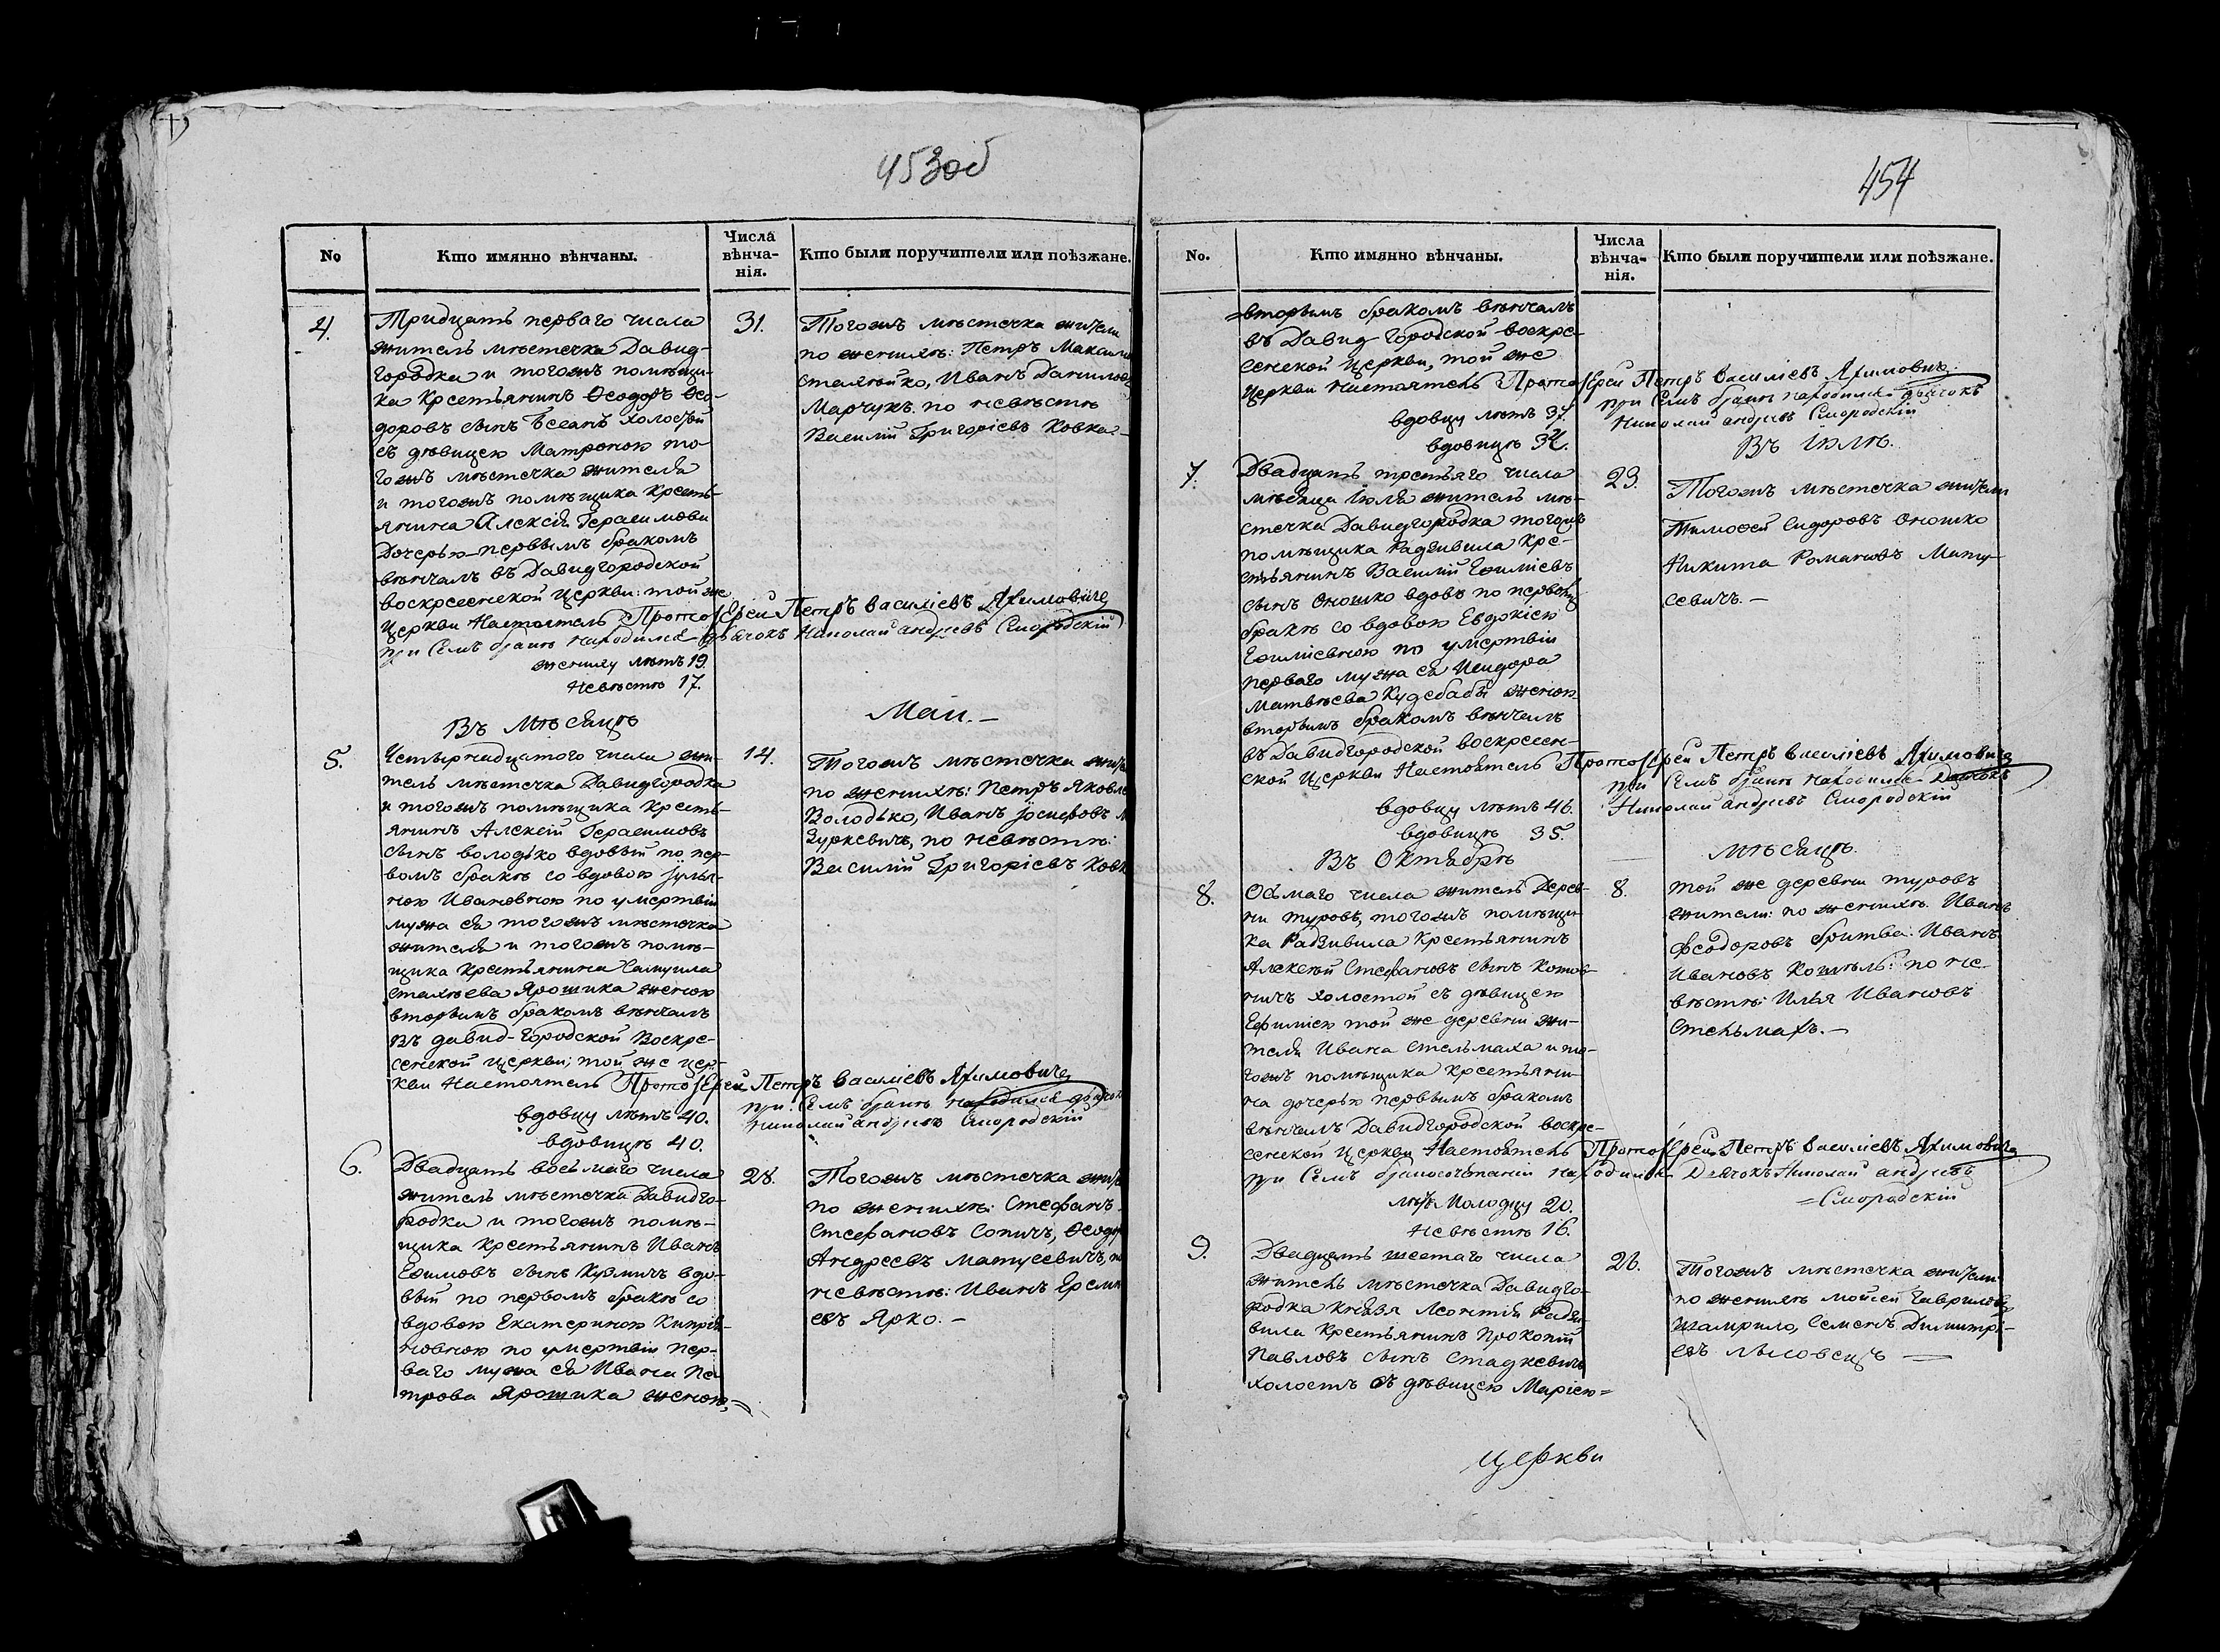 453об
No
Кто имянно вѣнчаны.
Числа вѣнча-нія.
Кто были поручители или поѣзжане.
4.
Тридцать перваго числа
житель мѣстечка Давид-
городка и тогожъ помѣщи-
ка крестьянинъ Ѳеодоръ Ѳео-
доровъ сынъ холостый
съ дѣвицею Матроною то-
гожъ мѣстечка жителя
и тогожъ помѣщика кресть-
янина Алексія Герасимови
дочерью первымъ бракомъ
вѣнчалъ въ Давидгородской
воскресенской церкви: той же
церкви Настоятель ПротоІерей Петръ Василіевъ Якимовичъ
при семъ бракѣ находился дьячокъ Николай Андреевъ Смородскій
жениху лѣтъ 19.
невѣстѣ 17.
31.
Тогожъ мѣстечка жители
по женихѣ: Петръ
Иванъ
Марчукъ. по невѣстѣ
Василій Григоріевъ Ковка-
Въ Мѣсяцѣ
Маи.-
5.
Четырнадцатого числа жи-
тель мѣстечка Давидгородка
и тогожъ помѣщика кресть-
янинъ Алексій Герасимовъ
сынъ володько вдовый по пер-
вомъ бракѣ со вдовою Јулья-
ною Ивановною по умертвіи
мужа ея тогожъ мѣстечка
жителя и тогожъ помѣ-
щика крестьянина Самуила
стахѣева Ярошика женою
вторымъ бракомъ вѣнчалъ
въ давид-городской Воскре-
сенской церкви; той же цер-
кви Настоятель ПротоІерей Петръ Василіевъ Якимовичъ
вдовцу лѣтъ 40.
при семъ бракѣ находился дьячокъ
вдовицѣ 40.
Николай Андреевъ Смородскій
14.
Тогожъ мѣстечка
по женихѣ: Петръ
Володько, Иванъ Јосифовъ
Зуркевичъ, по невѣстѣ:
Василій Григоріевъ
6.
Двадцать восьмаго числа
житель мѣстечка Давидго-
родка и тогожъ помѣ-
щика крестьянинъ Иванъ
Ефимовъ сынъ Кузмичъ вдо-
вый по первомъ бракѣ со
вдовою Екатериною Кипрія-
новною по умертвіи пер-
ваго мужа ея Ивана Пе-
трова Ярошика женою,=
28.
Тогожъ мѣстечка
по женихѣ: Стефанъ
Стефановъ Сопичъ,
Андреевъ матусевичъ,
невѣстѣ: Иванъ
евъ Ярко.-
454
No.
Кто имянно вѣнчаны.
Числа вѣнча-нія.
Кто были поручители или поѣзжане.
=вторымъ бракомъ вѣнчалъ
въ Давид городской воскре-
сенской церкви, той же
церкви Настоятель ПротоІерей Петръ Василіевъ Якимовичъ.
при семъ бракѣ находился дьячокъ
вдовцу лѣтъ 37.
Николай Андреевъ Смородскій
вдовицѣ
Въ Іюлѣ.
7.
Двадцать третьяго числа
мѣсяца Іюля житель мѣ-
стечка Давидгородка тогожъ
помѣщика Радзивила кре-
стьянинъ Василій Ефиміевъ
сынъ Оношко вдовъ по первомъ
бракѣ со вдовою Евдокіею
Ефиміевною по умертвіи
перваго мужа ея Исидора
Матвѣева Кудебабы женою
вторымъ бракомъ вѣнчалъ
въ Давидгородской воскресен-
ской церкви Настоятель ПротоІерей Петръ Василіевъ Якимовичъ
при семъ бракѣ находился Дьячокъ
вдовцу лѣтъ 46.
Николай Андреевъ Смородскій
вдовицѣ 35.
23.
Тогожъ мѣстечка жители
Тимоѳей Сидоровъ Оношко
Никита Романовъ Мату-
севичъ.-
Въ Октябрѣ
мѣсяцѣ.
8.
Осьмаго числа житель Дерев-
ни туровъ, тогожъ помѣщи-
ка Радзивила крестьянинъ
Алексѣй Стефановъ сынъ
холостой съ дѣвицею
Ефиміею той же деревни жи-
теля Ивана Стельмаха и то-
гожъ помѣщика крестьяни-
на дочерью первымъ бракомъ
вѣнчалъ Давидгородской воскре-
сенской церкви Настоятель ПротоІерей Петръ Василіевъ Якимовичъ
при семъ бракосочетаніи находился Дьячокъ Николай Андреевъ
=Смородскій
лѣтъ Молодцу 20.
невѣстѣ 16.
8.
той же деревни туровъ
жители: по женихѣ. Иванъ
Ѳеодоровъ бритва. Иванъ
Ивановъ Кошель: по не-
вѣстѣ: Илья Ивановъ
Стельмахъ.-
9.
Двадцать шестаго числа
житель мѣстечка Давидго-
родка князя Леонтія Радзи-
вила крестьянинъ Прокопій
Павловъ сынъ Стадкевичъ
холостъ съ дѣвицею Маріею=
26.
Тогожъ мѣстечка жители
по женихѣ мойсей Гавриловъ
Шамрило, Семенъ Димитрі-
евъ
церкви